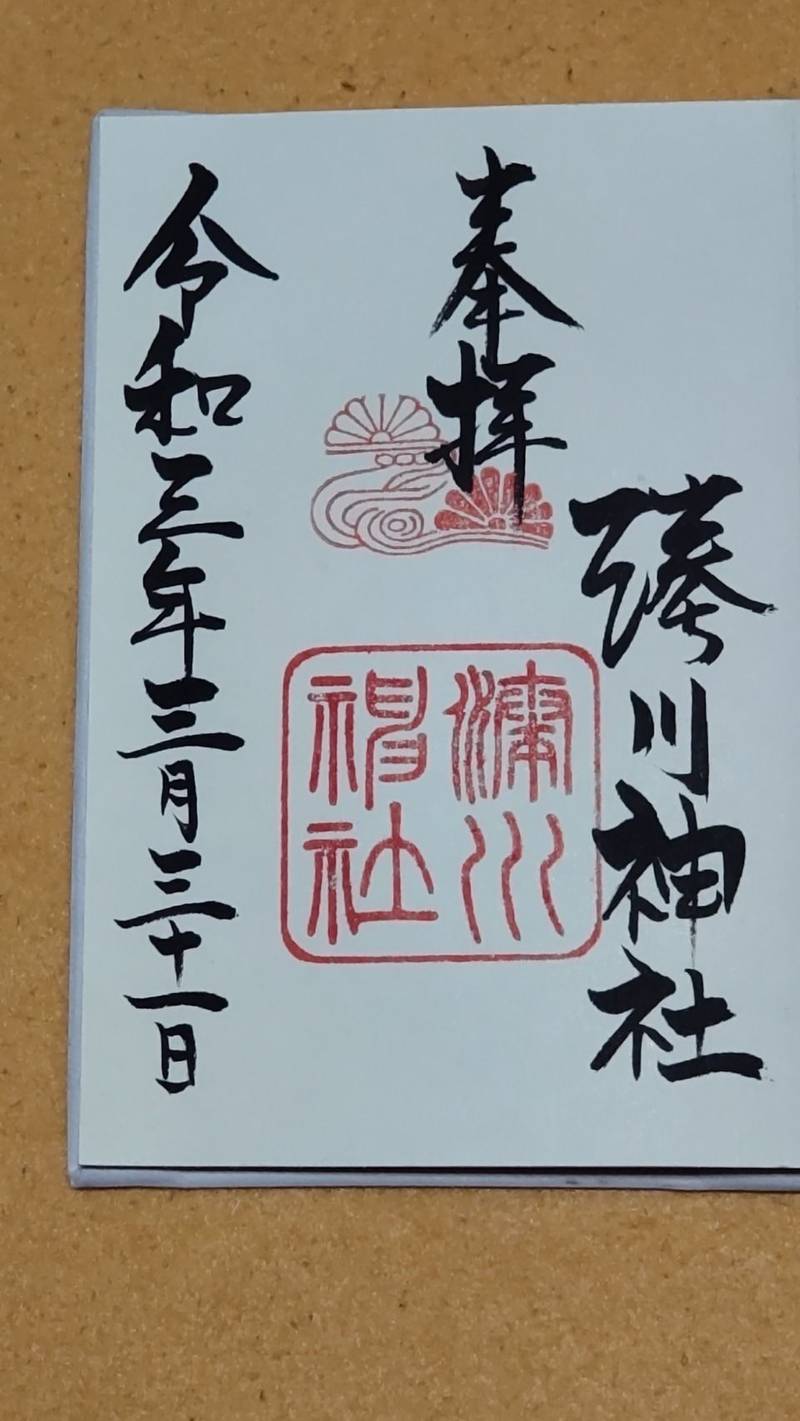 湊川神社
奉拝
湊川
神社
令和三年三月三十一日